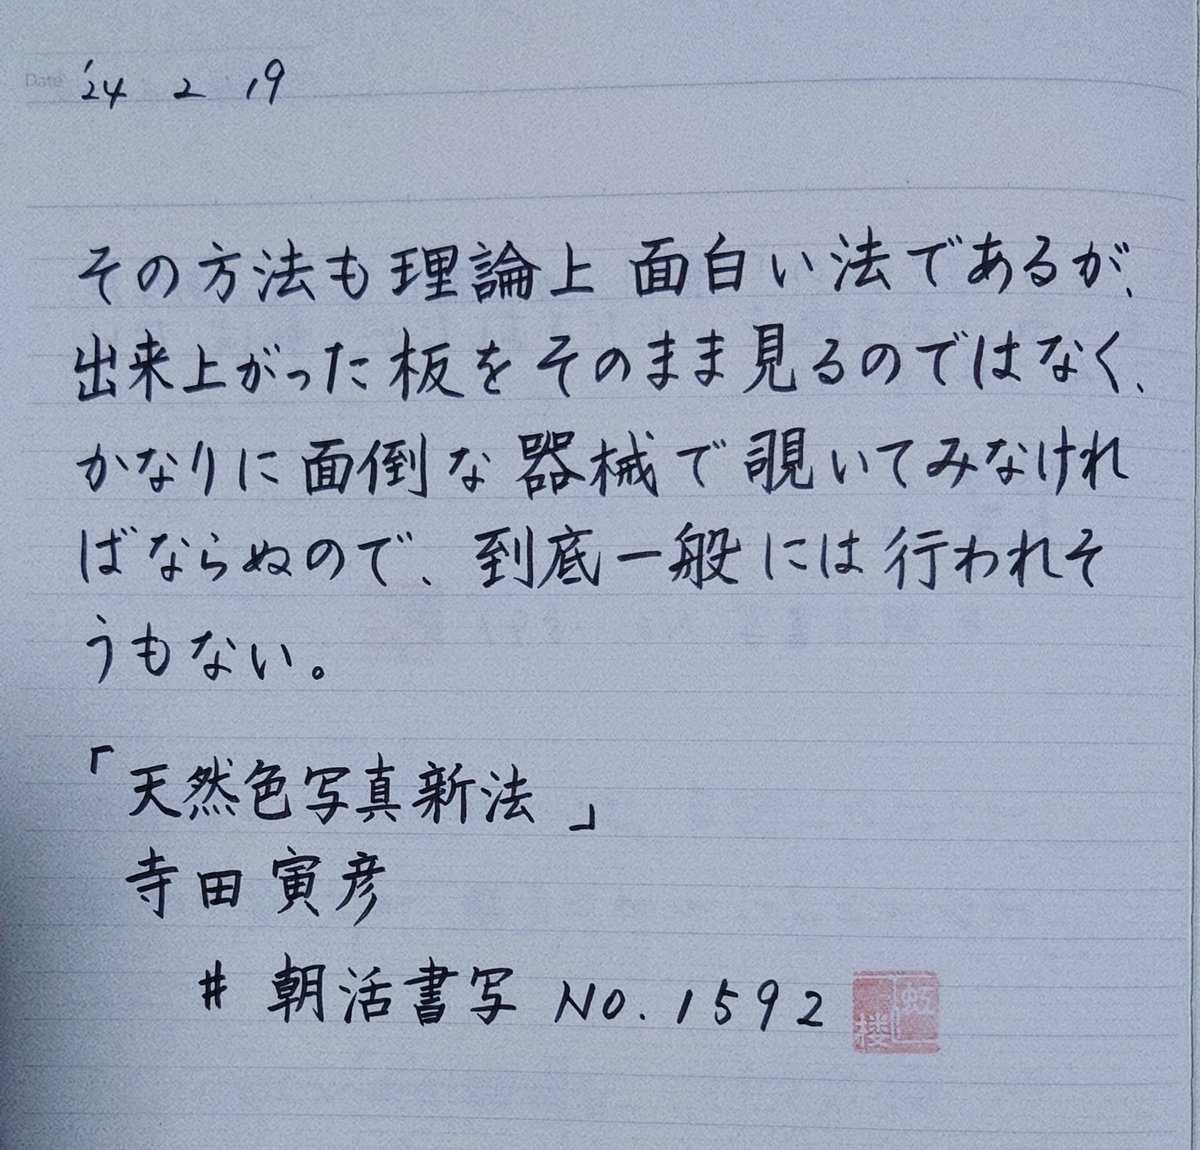 Date '24 2 19
その方法も理論上面白い法であるが、
出来上がった板をそのまま見るのではなく、
かなりに面倒な器械で覗いてみなけれ
ばならぬので、到底一般には行われそ
うもない。
「天然色写真新法」
寺田寅彦
#朝活書写 No.1592